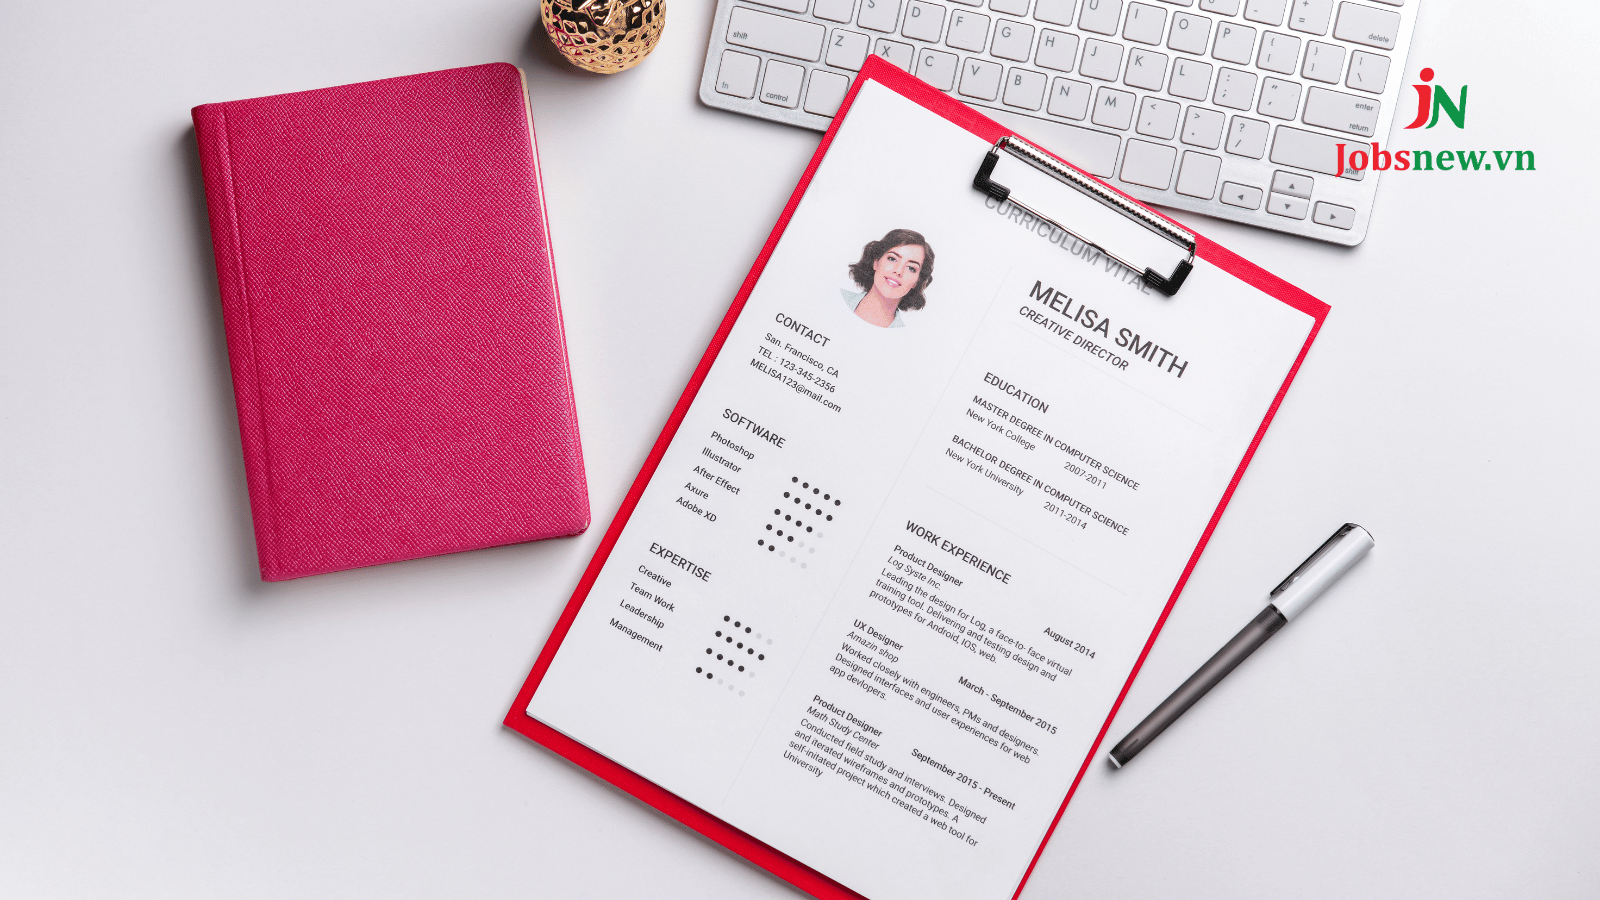 S D F G H J K L U I O P
shift Z X C V B N M
fn control
delete
enter
return
shift
JN
Jobsnew.vn
CURRICULUM VITAE
MELISA SMITH
CREATIVE DIRECTOR
CONTACT
San. Francisco, CA
TEL : 123-345-2356
MELISA123@mail.com
SOFTWARE
Photoshop
Illustrator
After Effect
Axure
Adobe XD
EXPERTISE
Creative
Team Work
Leadership
Management
EDUCATION
MASTER DEGREE IN COMPUTER SCIENCE
New York College 2007-2011
BACHELOR DEGREE IN COMPUTER SCIENCE
New York University 2011-2014
WORK EXPERIENCE
Product Designer
Log Syste Inc. August 2014
Leading the design for Log, a face-to- face virtual
training tool. Delivering and testing design and
prototypes for Android, IOS, web.
UX Designer
Amazin shop March - September 2015
Worked closely with engineers, PMs and designers.
Designed interfaces and user experiences for web
app devlopers.
Product Designer
Math Study Center September 2015 - Present
Conducted field study and interviews. Designed
and iterated wireframes and prototypes. A
self-initated project which created a web tool for
University